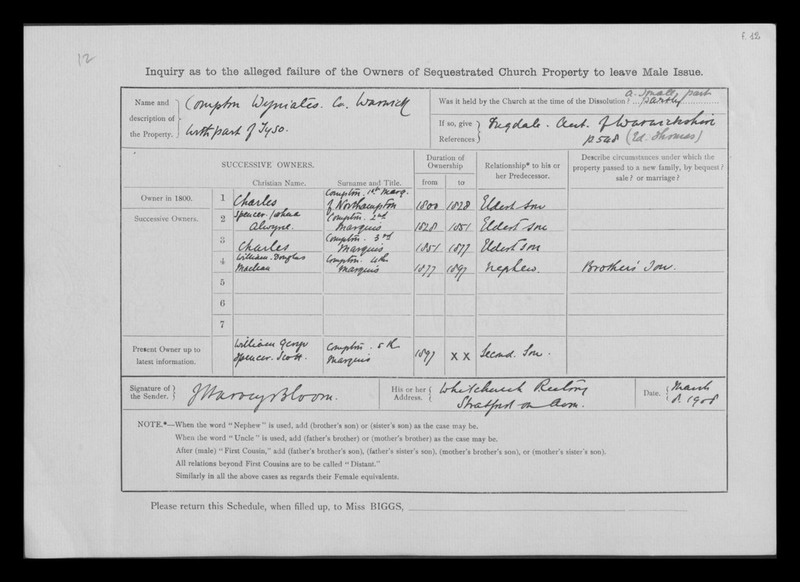 f. 12
12
Inquiry as to the alleged failure of the Owners of Sequestrated Church Property to leave Male Issue.
Name and description of the Property.
Compton Wyniates. Co. Warwick
with part of Tyso.
Was it held by the Church at the time of the Dissolution? a small part partly
If so, give References
Dugdale. Ant. of Warwickshire
p 548 (Ed. Thomas)
SUCCESSIVE OWNERS.
Christian Name. Surname and Title.
Duration of Ownership
from to
Relationship* to his or her Predecessor.
Describe circumstances under which the property passed to a new family, by bequest? sale? or marriage?
Owner in 1800. 1 Charles Compton. 1st Marq. of Northampton 1800 1828 Eldest Son
Successive Owners. 2 Spencer. Joshua Alwyne. Compton. 2nd Marquis 1828 1851 Eldest son
3 Charles Compton. 3rd Marquis 1851 1877 Eldest Son
4 William. Douglas Maclean Compton. 4th Marquis 1877 1897 Nephew. Brother's Son.
5
6
7
Present Owner up to latest information. William George Spencer. Scott. Compton. 5th Marquis 1897 x x Second. Son.
Signature of the Sender. J Harvey Bloom.
His or her Address. Whitchurch Rectory
Stratford on Avon.
Date. March
8. 1908
NOTE.*—When the word "Nephew" is used, add (brother's son) or (sister's son) as the case may be.
When the word "Uncle" is used, add (father's brother) or (mother's brother) as the case may be.
After (male) "First Cousin," add (father's brother's son), (father's sister's son), (mother's brother's son), or (mother's sister's son).
All relations beyond First Cousins are to be called "Distant."
Similarly in all the above cases as regards their Female equivalents.
Please return this Schedule, when filled up, to Miss BIGGS,